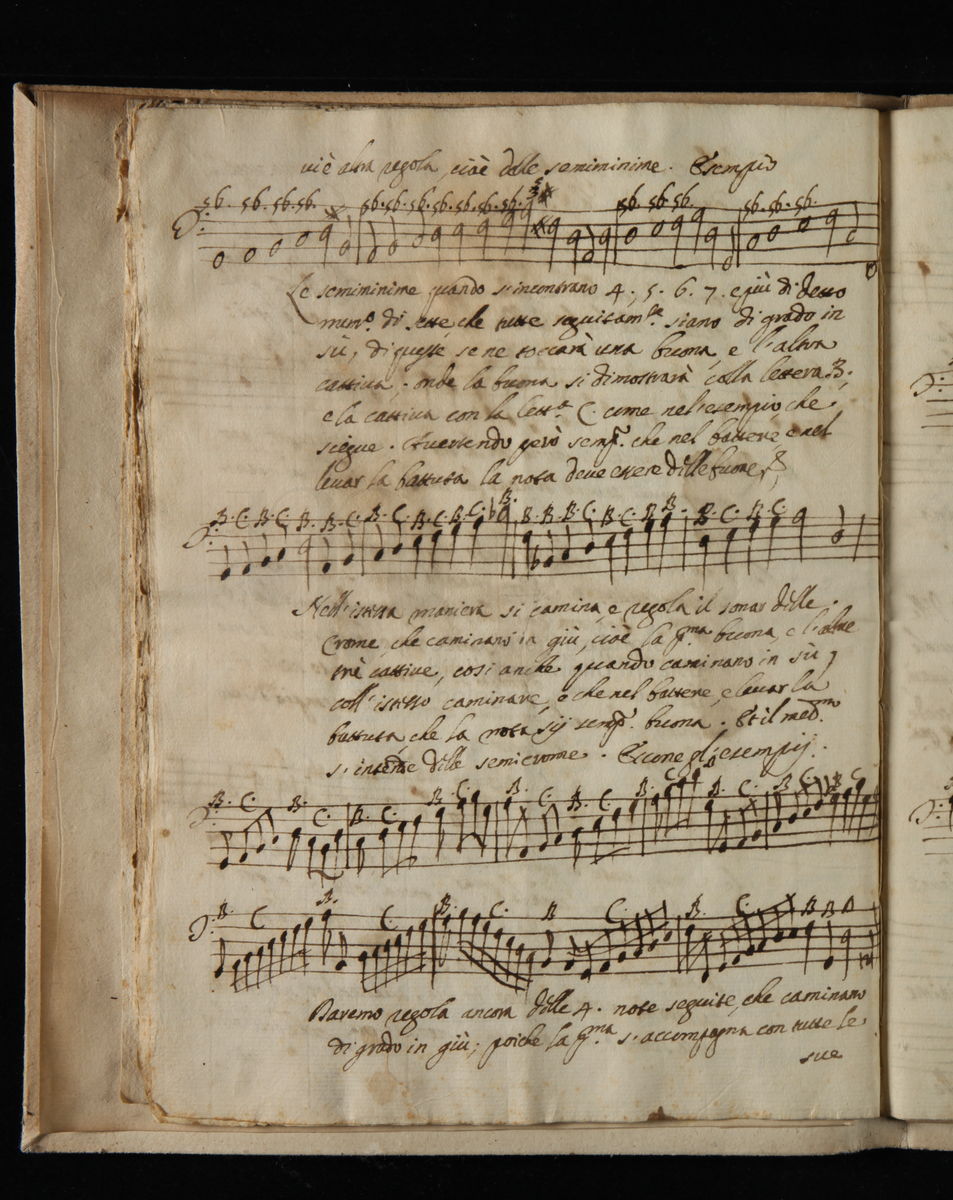 vi è altra regola, cioè delle semiminime. Esempio
56. 56. 56. 56. 56. 56. 56. 56. 56. 56. 56. 56. 56. 56. 56. 56. 56.
Le semiminime quando s'incontrano 4. 5. 6. 7. e più di detto
num.o di esse, che tutte seguitam.te siano di grado in
sù, di queste se ne toccarà una buona, e l'altra
cattiva, onde la buona si dimostrarà colla lettera B.,
e la cattiva con la lett.a C. come nel'esempio che
siegue. Avertendo però semp.e che nel battere, e nel
levar la battuta la nota deve essere delle buone,
B. C. B. C. B. B. C. B. C. B. C. B. C. B. B. B. B. C. B. C. B. B. B. C. B. C.
Nell'istessa maniera si camina, e regola il sonar delle
Crome, che caminano in giù, cioè la p.ma buona, e l'altre
trè cattive, così anche quando caminano in sù,
coll'istesso caminare, e che nel battere, e levar la
battuta, che la nota sij semp.e buona. Et il med.mo
s'intende delle semicrome. Eccone gl'esempij.
B. C. B. C. B. C. B. C. B. C. B. C. B. C. B. C. B. C. B. C.
B. C B. C. B. C. B C. B. C. B B B
Daremo regola ancora delle 4. note seguite, che caminano
di grado in giù; poiche la p.ma s'accompagna con tutte le
sue